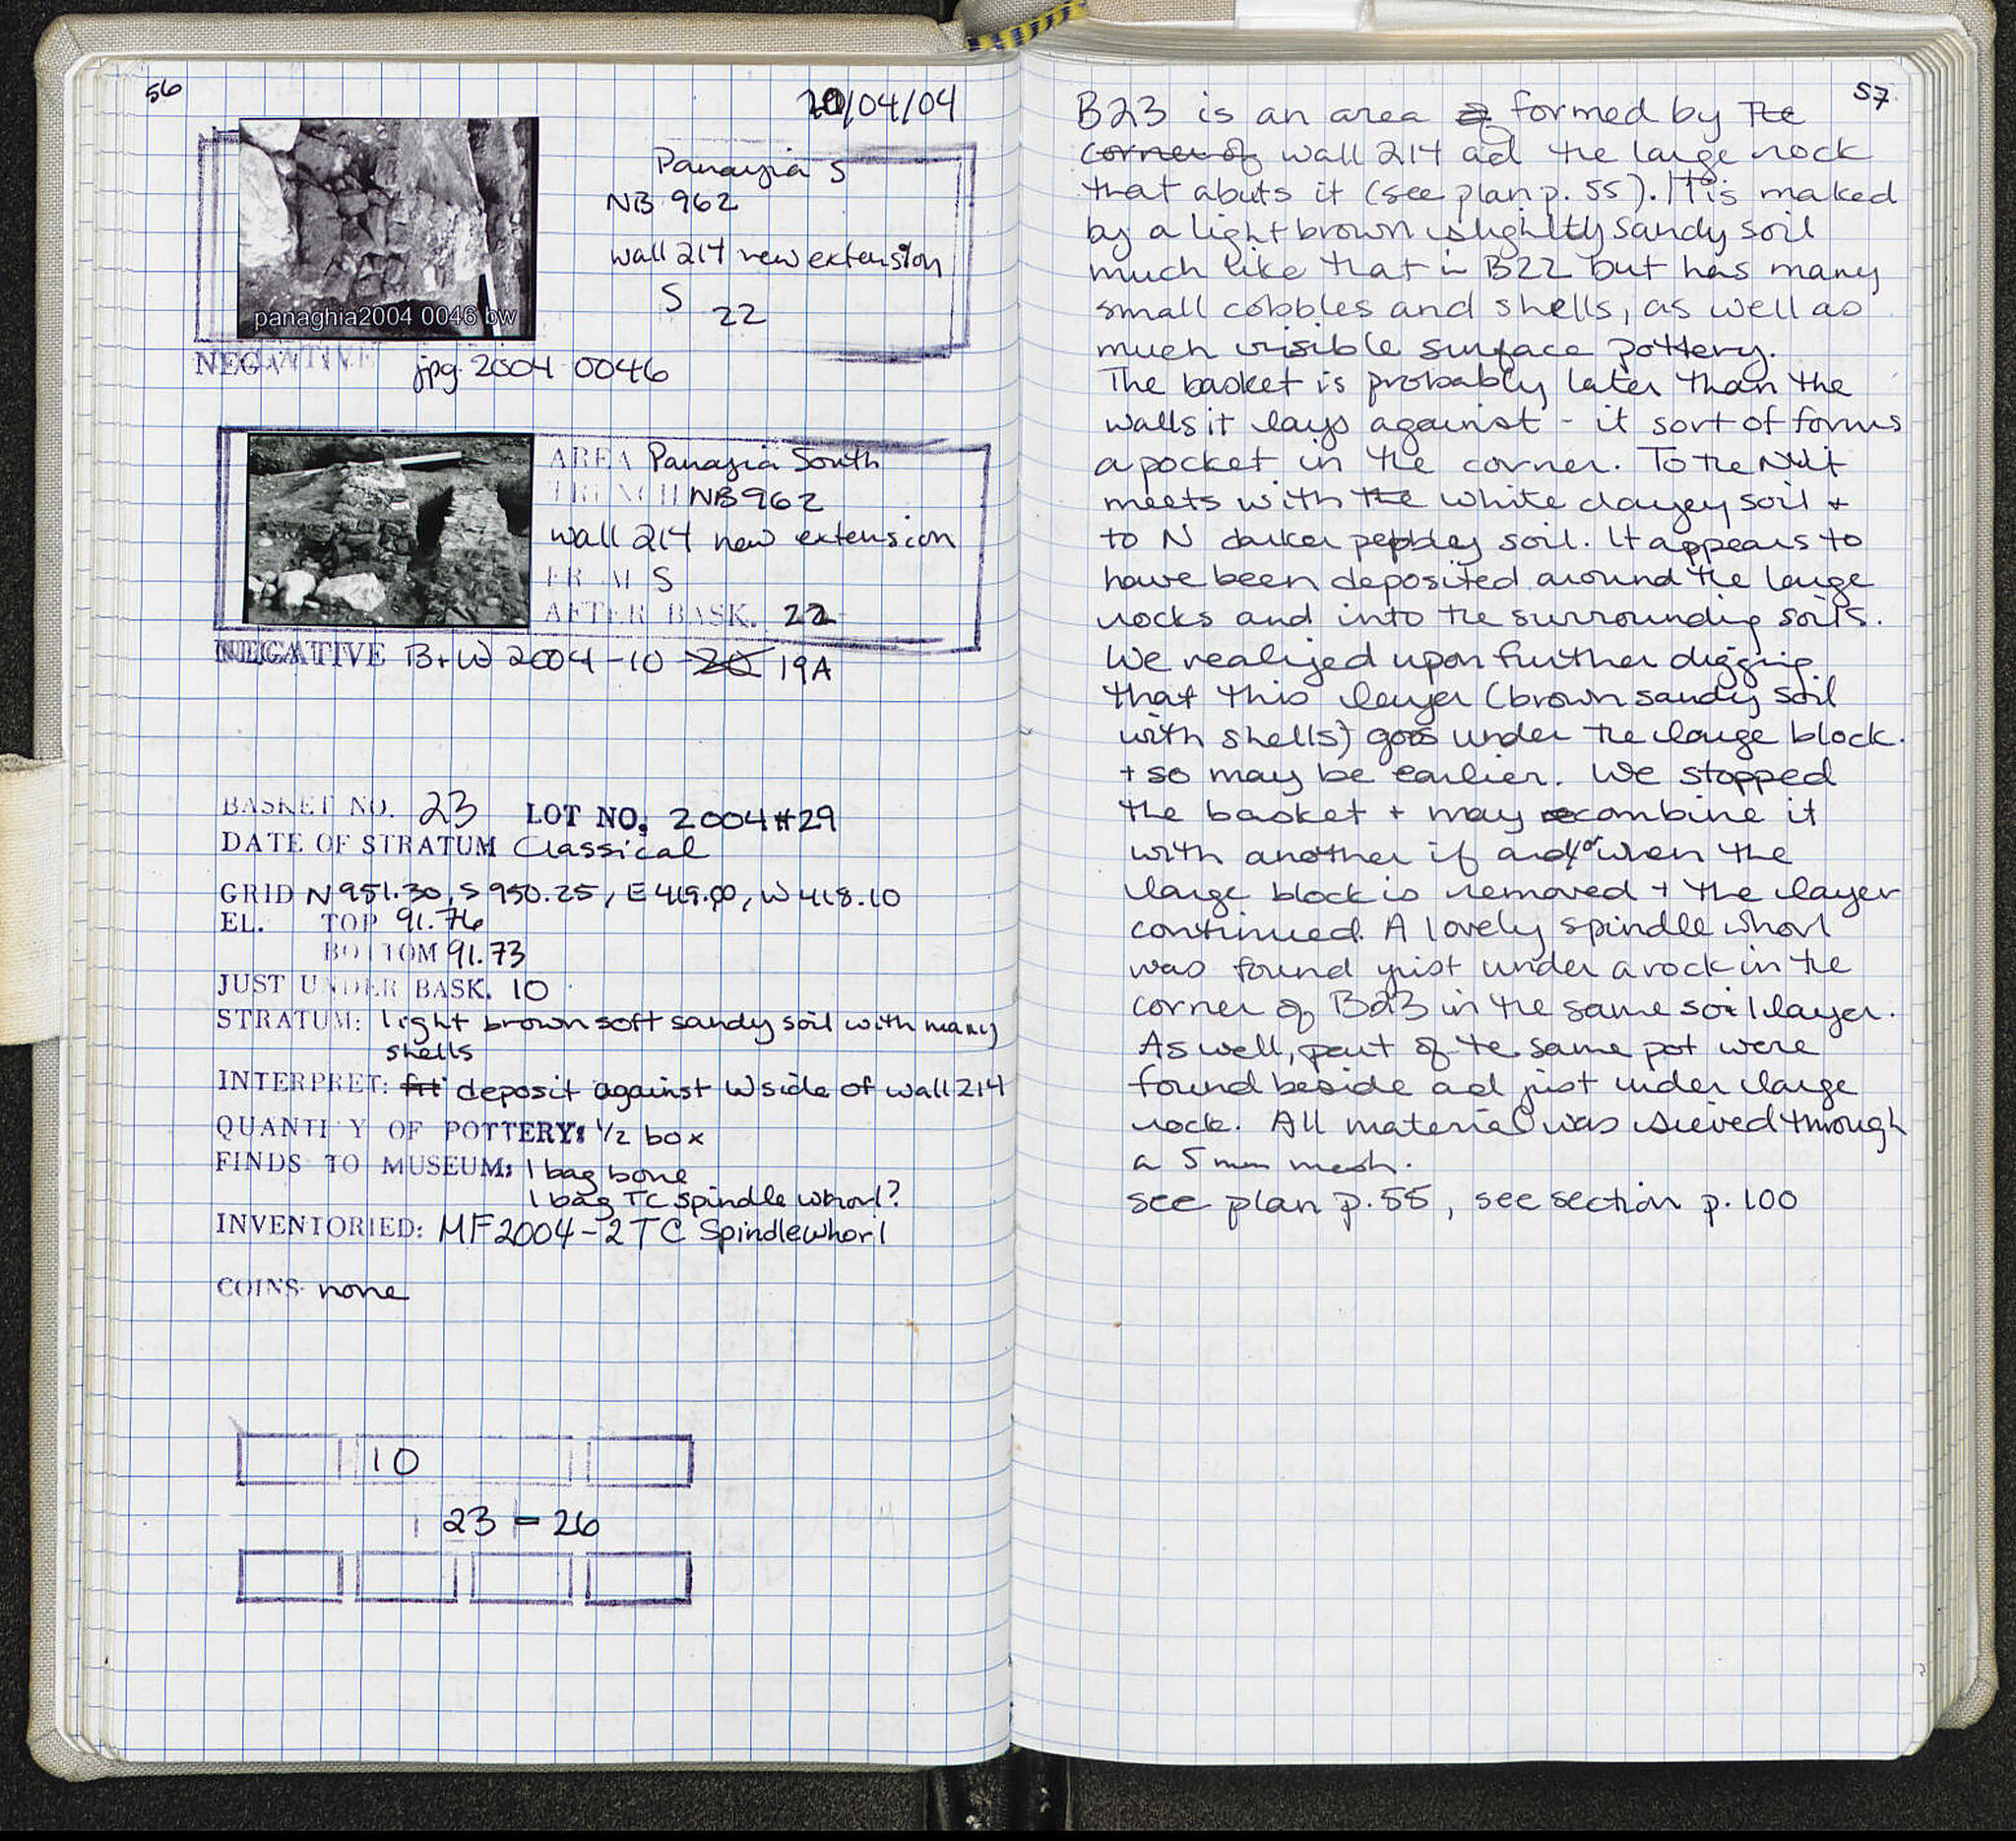 56
20/04/04
Panayia S
NB 962
wall 214 new extension
S
22
panaghia2004 0046 bw
NEGATIVE jpg 2004 0046
AREA Panayia South
TRENCH NB 962
wall 214 new extension
FROM S
AFTER BASK. 22
NEGATIVE B+W 2004-10-20 19A
BASKET NO. 23 LOT NO. 2004#29
DATE OF STRATUM Classical
GRID N 951.30, S 950.25, E 419.00, W 418.10
EL. TOP 91.76
BOTTOM 91.73
JUST UNDER BASK. 10
STRATUM: light brown soft sandy soil with many
shells
INTERPRET: fill deposit against W side of wall 214
QUANTITY OF POTTERY: 1/2 box
FINDS TO MUSEUM: 1 bag bone
1 bag TC spindle whorl?
INVENTORIED: MF2004-2 TC Spindlewhorl
COINS none
10
23 = 26
57
B23 is an area formed by the
corner of wall 214 ad the large rock
that abuts it (see plan p. 55). It is maked
by a light brown slightly sandy soil
much like that in B22 but has many
small cobbles and shells, as well as
much visible surface pottery.
The basket is probably later than the
walls it lays against - it sort of forms
a pocket in the corner. To the NW it
meets with the white clayey soil +
to N darker pebbley soil. It appears to
have been deposited around the large
rocks and into the surroundig soils.
We realized upon further digging
that this layer (brown sandy soil
with shells) goes under the large block.
+ so may be earlier. We stopped
the basket + may recombine it
with another if and/or when the
large block is removed + the layer
continued. A lovely spindle whorl
was found just under a rock in the
corner of B23 in the same soil layer.
As well, part of te same pot were
found beside ad just under large
rock. All material was sieved through
a 5mm mesh.
see plan p. 55, see section p. 100